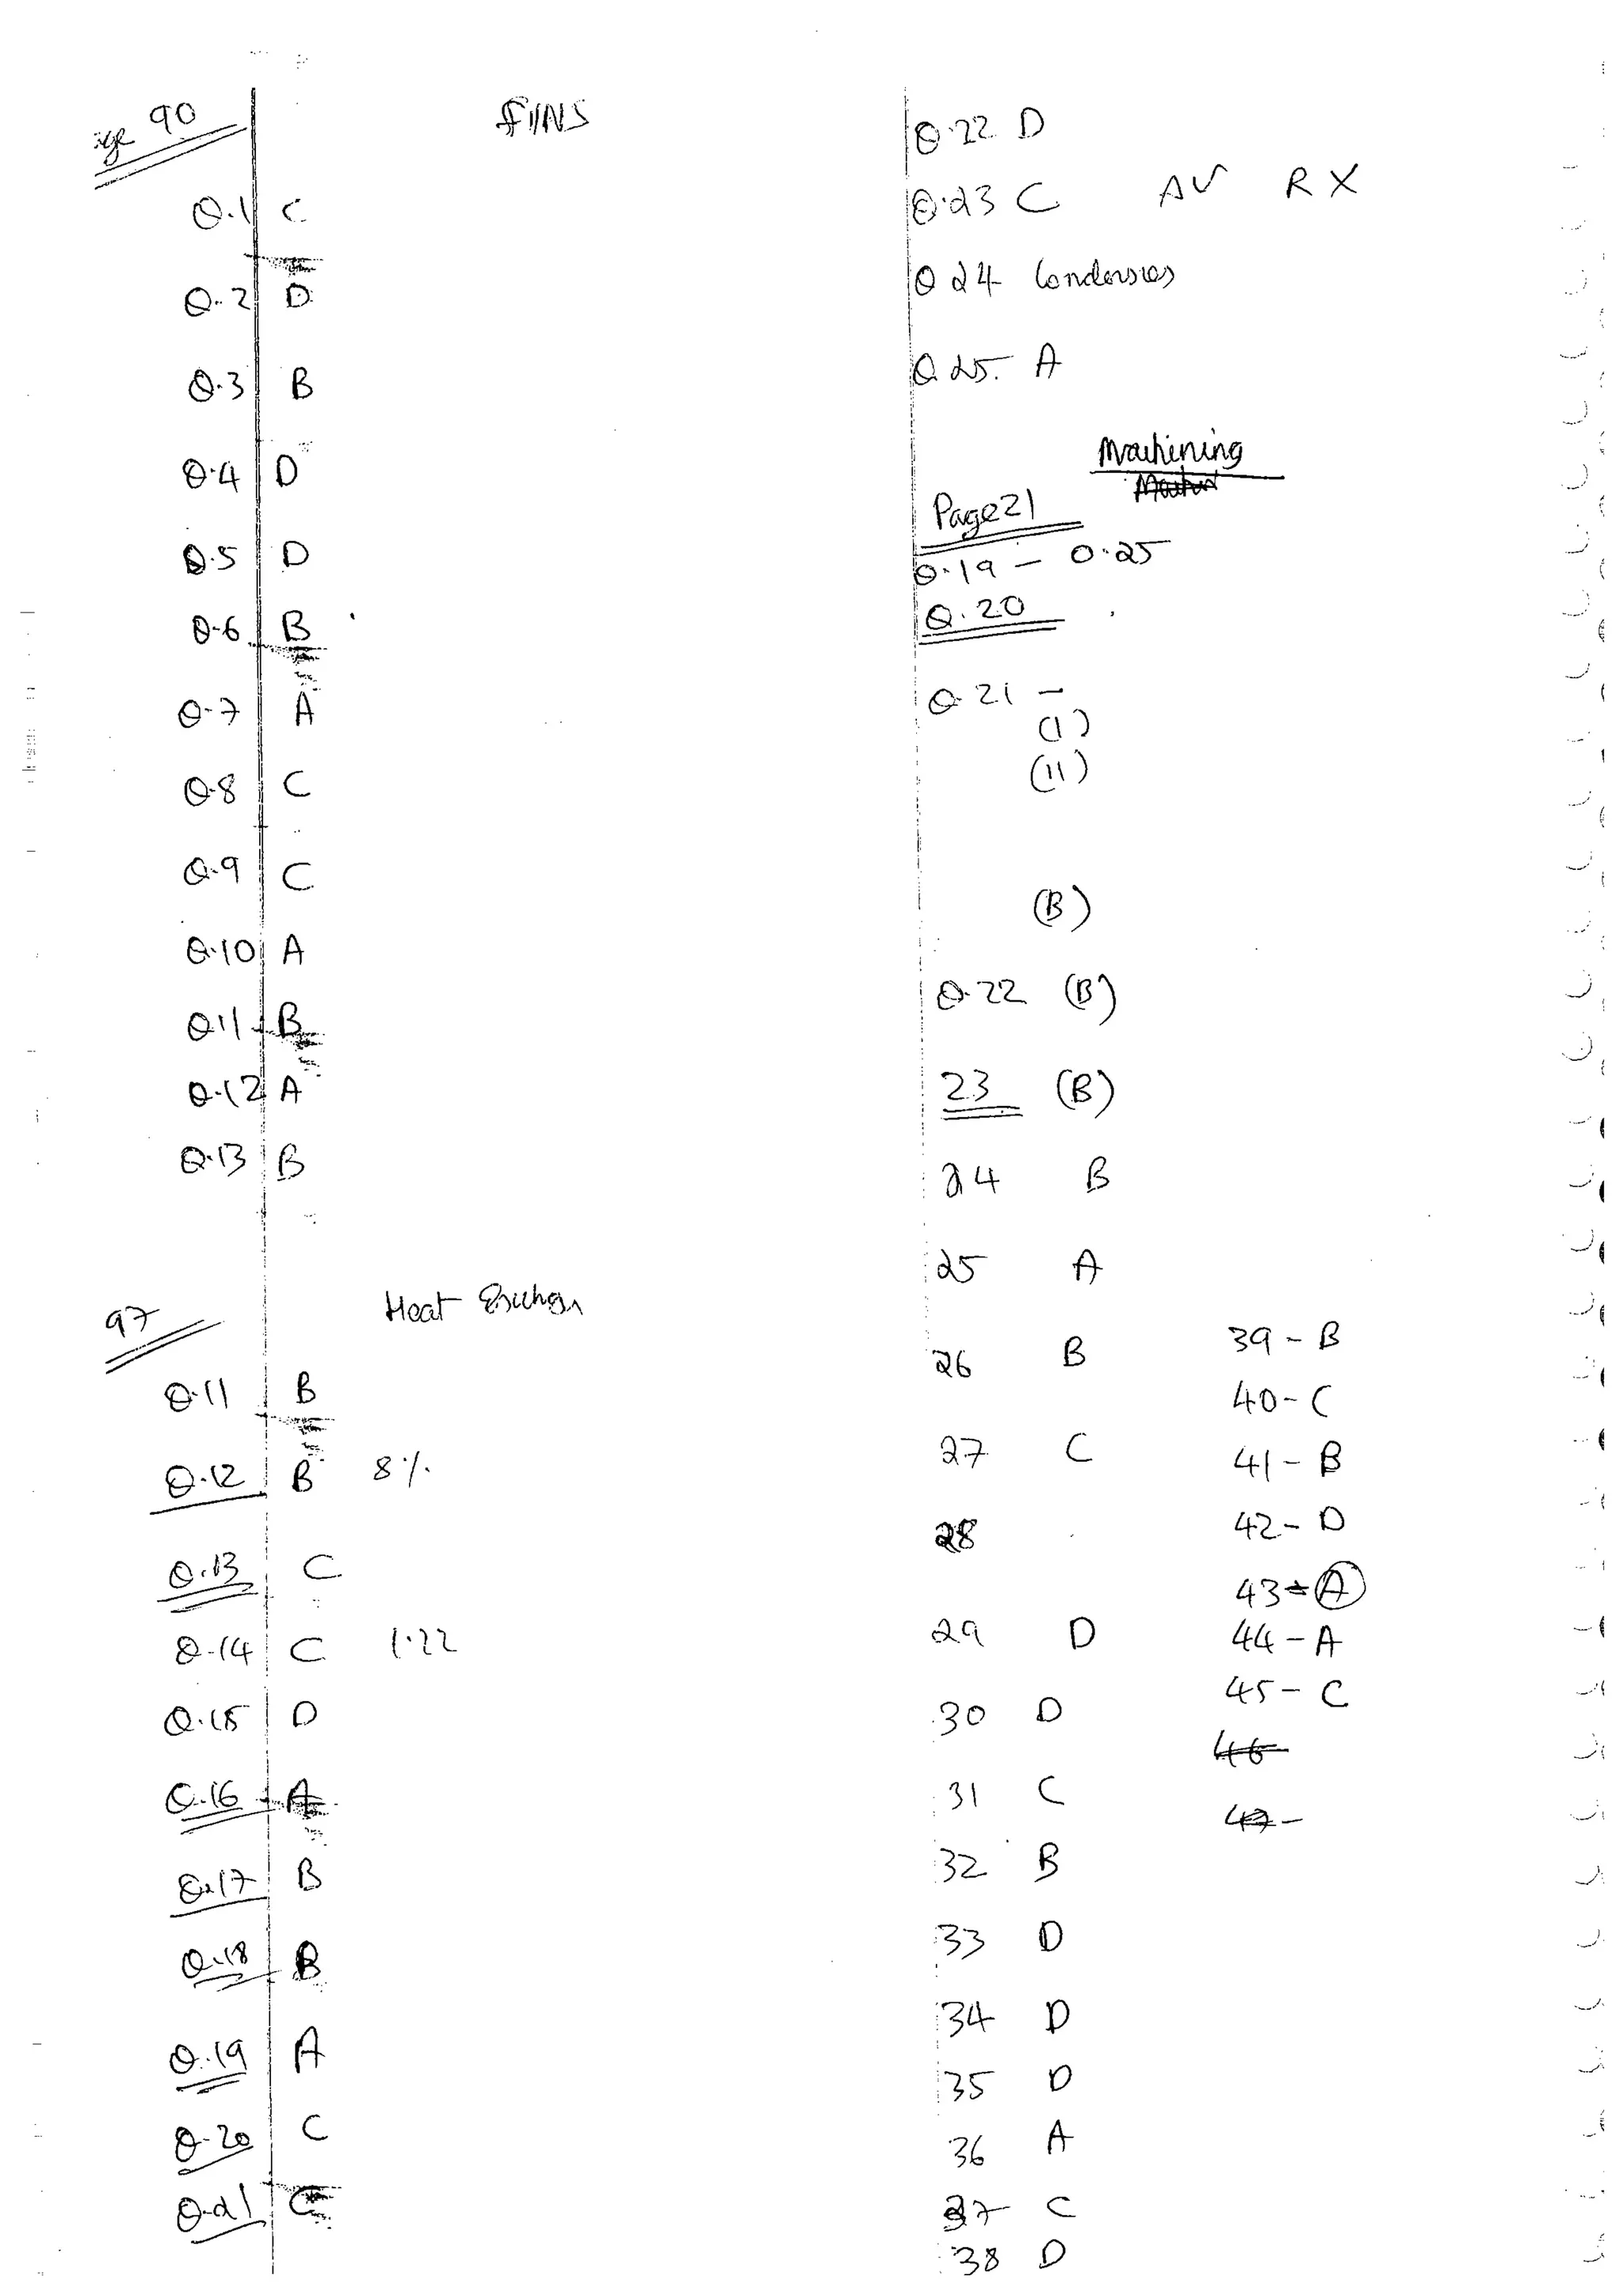 90
FINS
Q.1 C
Q.2 D
Q.3 B
Q.4 D
Q.5 D
Q.6 B
Q.7 A
Q.8 C
Q.9 C
Q.10 A
Q.11 B
Q.12 A
Q.13 B
97
Heat
Q.11 B
Q.12 B 8%
Q.13 C
Q.14 C 1.22
Q.15 D
Q.16 A
Q.17 B
Q.18 B
Q.19 A
Q.20 C
Q.21 C
Q.22 D
Q.23 C AV RX
Q 24
Q 25. A
Machining
Page 21
Q.19 - 0.25
Q.20
Q.21 -
(I)
(II)
(B)
Q.22 (B)
23 (B)
24 B
25 A
26 B
27 C
28
29 D
30 D
31 C
32 B
33 D
34 D
35 D
36 A
37 C
38 D
39 - B
40 - C
41 - B
42 - D
43 - A
44 - A
45 - C
46
47 -